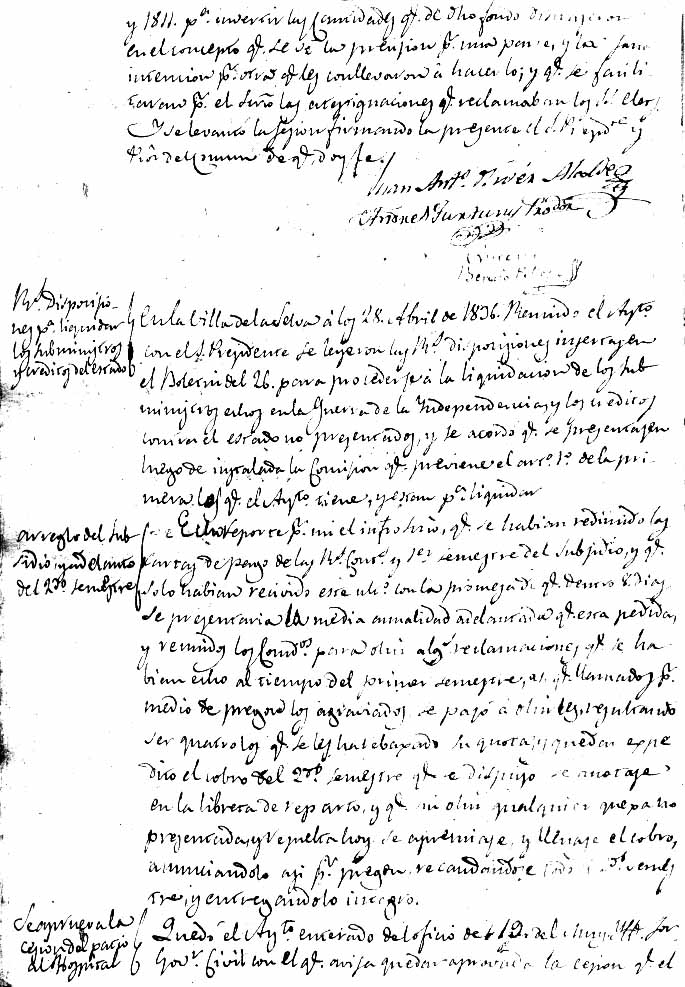 y 1811. pª. invertir las Cantidades qe. de dho fondo
en el concepto qe. se ve la precision pr. una parte, y la sana
intencion pr. otra qe. les conllevaron à hacerlo; y qe. se facili-
taran pr. el Srio las asignaciones qe. reclamaban los
Y se levantó la sesion firmando la presente el S. Presidte. y
del Comun de qe. doy fe.
Juan Antº. Alcalde
Benito
Rs. Disposicio-
nes pª. liquidar
los subministros
y creditos del estado
En la Villa de la Selva à los 28. Abril de 1836. Reunido el Aytº.
con el S. Presidente se leyeron las Rs. disposiciones insertas en
el Boletin del 26. para procederse à la liquidacion de los sub
ministros echos en la Guerra de la Independencia, y los creditos
contra el estado no presentados, y se acordó qe. se presentasen
luego de instalada la Comision qe. previene el artº. 1º. de la pri-
mera los qe. el Aytº. tiene, y estan pª. liquidar
arreglo del Sub
sidio, y del
del 2do. semestre
Echo reporte pr. mi el infro Srio, qe. se habian redimido las
cartas de pago de las Rs. Cont. y 1er. semestre del Subsidio, y qe.
solo habian recivido este ulto. con la promesa de qe. dentro 8. dias
se presentaria la media anualidad adelantada qe. esta pedida,
y reunidos los para oir algs. reclamaciones qe. se ha-
bian echo al tiempo del primer semestre, es qe. llamados pr.
medio de pregon los agraviados, se pasó à oirles, resultando
ser quatro los qe. se les ha rebaxado su quota, y quedar expe
dito el cobro del 2do. semestre qe. se dispuso se anotase
en la libreta de reparto, y qe. sin oir qualquier quexa no
presentada, y resuelta hoy se apremiase, y llevase el cobro,
anunciandolo asi pr. pregon, recaudandose 2do. semes
tre, y entregandolo integro.
Se aprueva la
cesion del patio
al Hospital
Quedó el Aytº. enterado del oficio de 12. del Muy Ile. Sor.
Govr. Civil con el qe. avisa quedar aprovada la cesion qe. el